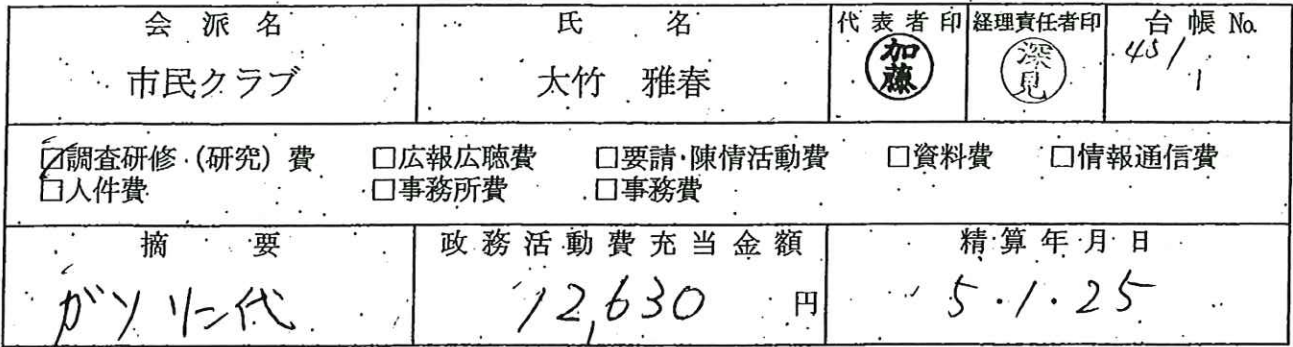 会派名 氏名 代表者印 経理責任者印 台帳No.
市民クラブ 大竹 雅春 加藤 深見 451/1
☑調査研修(研究)費 □広報広聴費 □要請・陳情活動費 □資料費 □情報通信費
□人件費 □事務所費 □事務費
摘要 政務活動費充当金額 精算年月日
ガソリン代 12,630 円 5・1・25